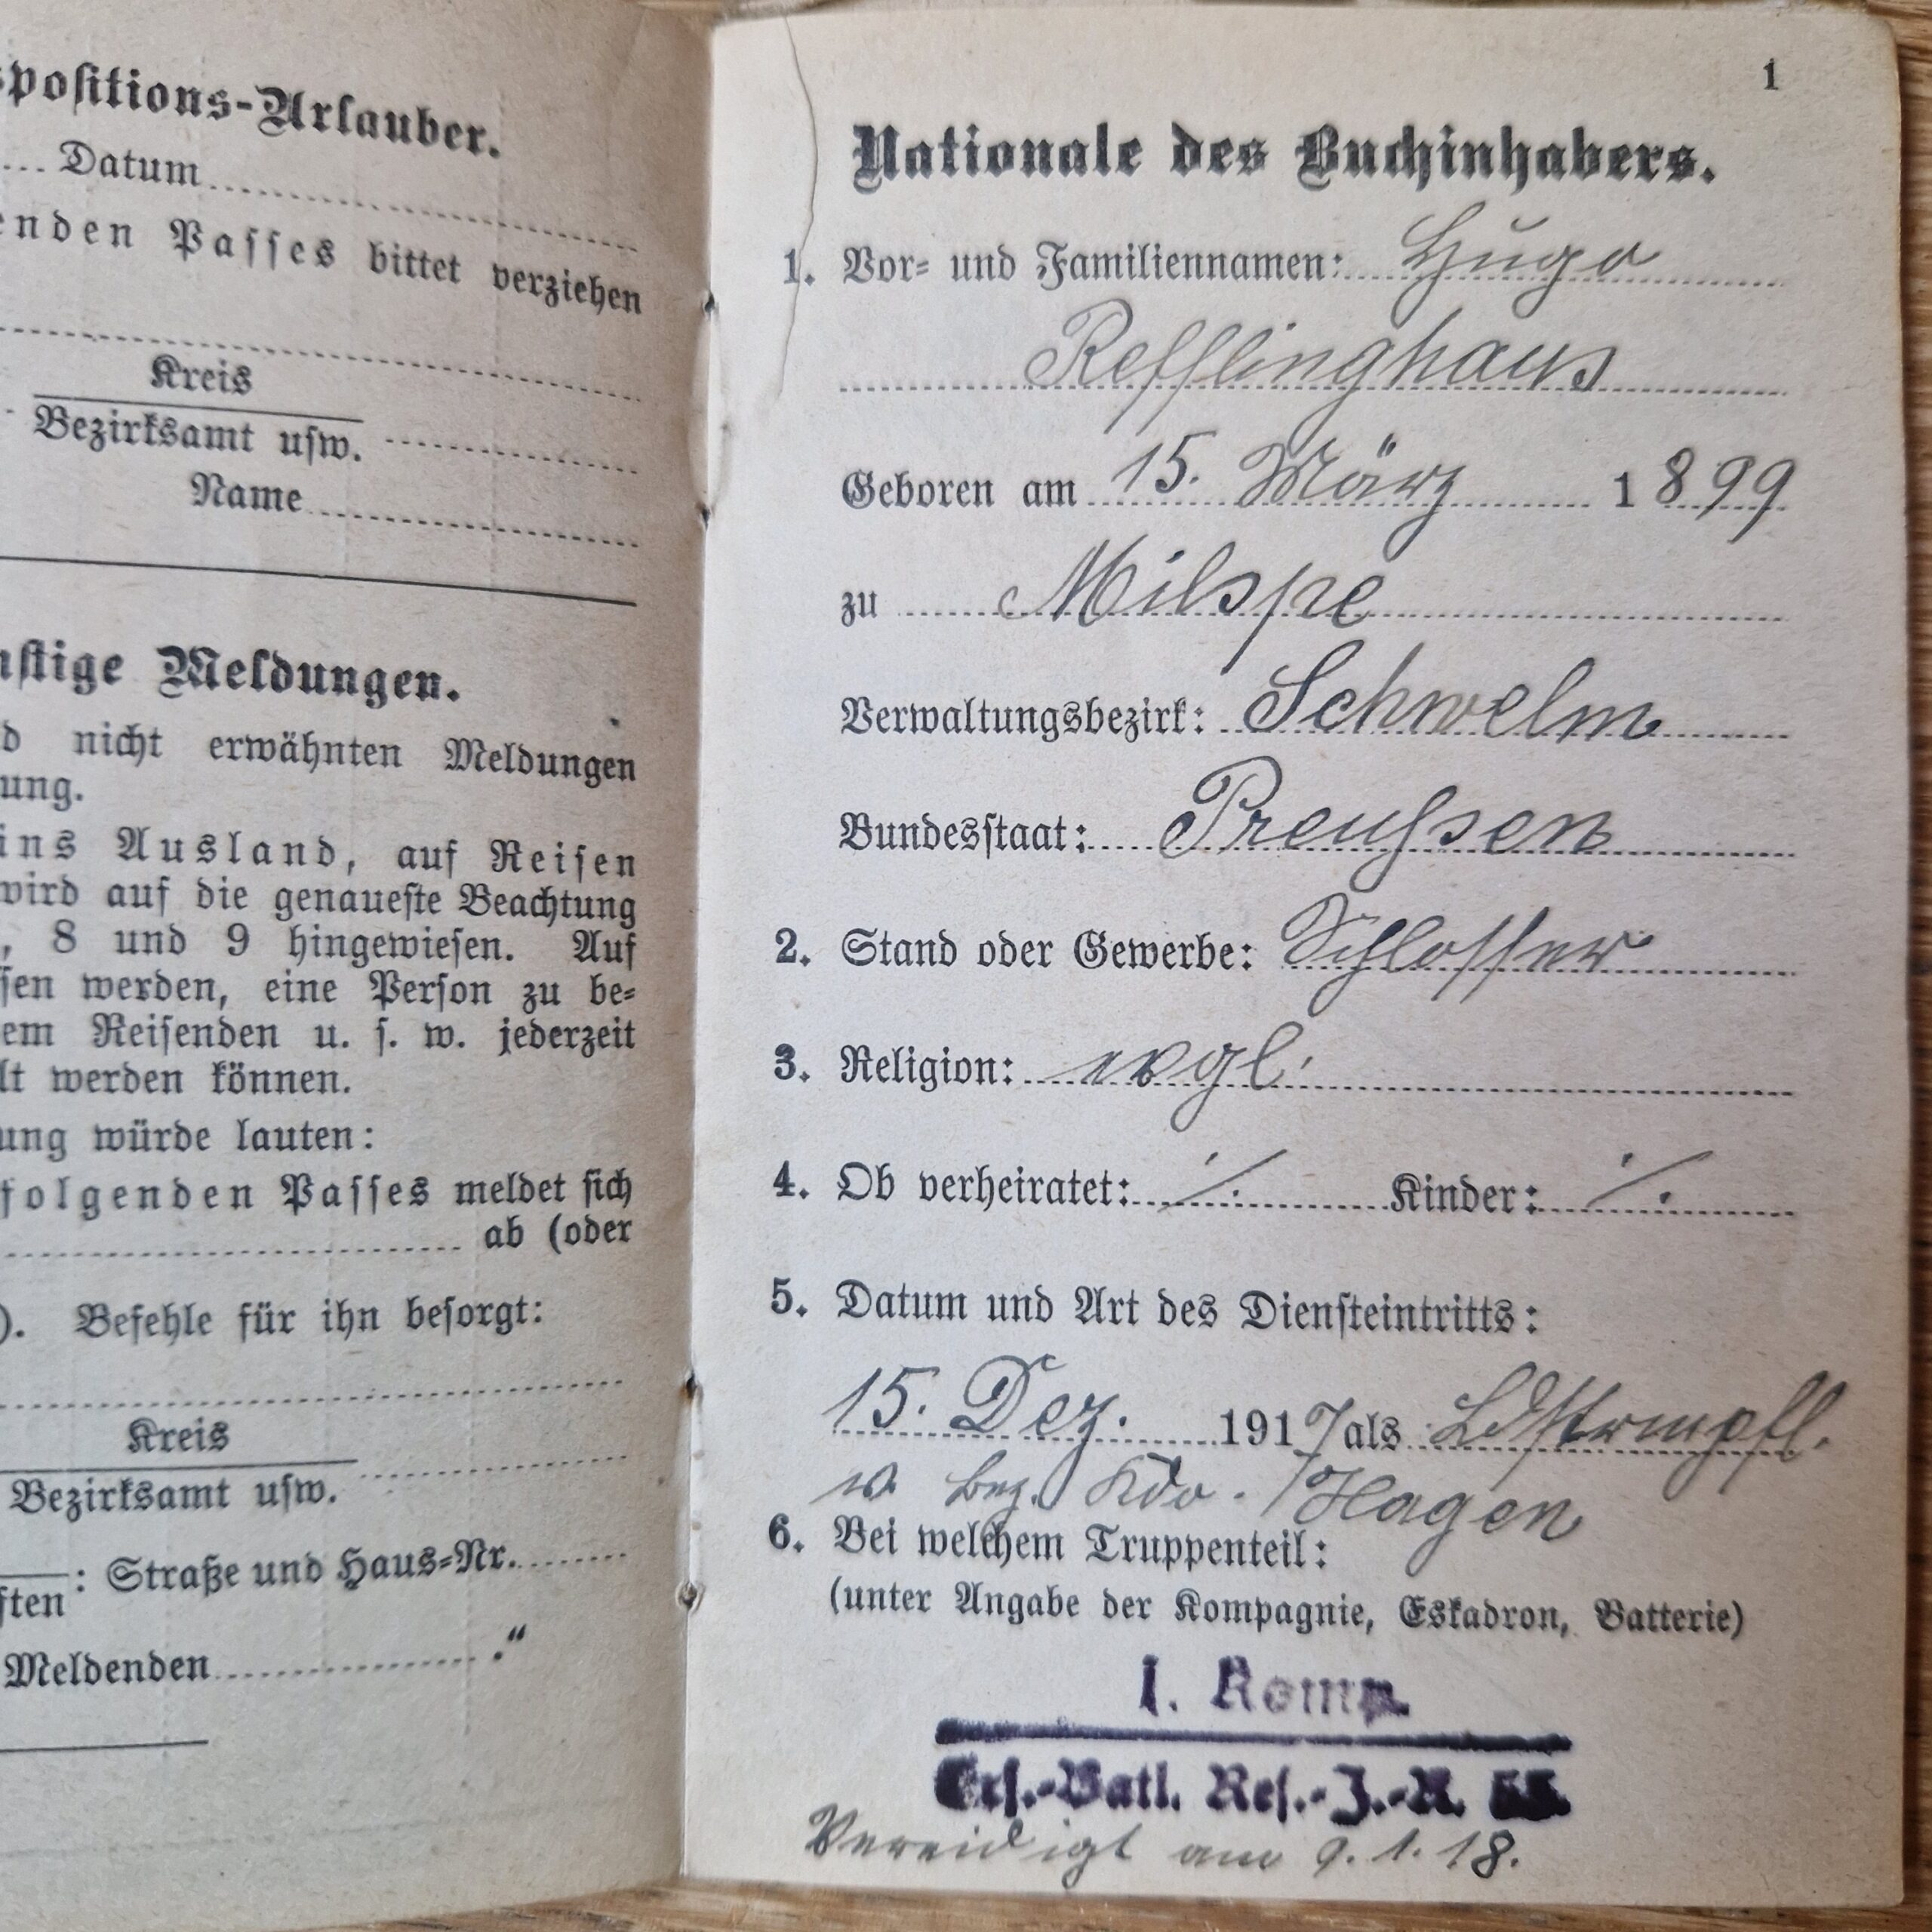 spositions-Urlauber.
... Datum
enden Passes bittet verziehen
Kreis
Bezirksamt usw.
Name
nstige Meldungen.
d nicht erwähnten Meldungen
ung.
ins Ausland, auf Reisen
wird auf die genaueste Beachtung
, 8 und 9 hingewiesen. Auf
sen werden, eine Person zu be=
em Reisenden u. s. w. jederzeit
lt werden können.
ung würde lauten:
folgenden Passes meldet sich
ab (oder
). Befehle für ihn besorgt:
Kreis
Bezirksamt usw.
: Straße und Haus=Nr.
ften
Meldenden ."
1
Nationale des Buchinhabers.
1. Vor= und Familiennamen: Hugo
Refflinghaus
Geboren am 15. März 1899
zu Milspe
Verwaltungsbezirk: Schwelm
Bundesstaat: Preußsen
2. Stand oder Gewerbe: Schlosser
3. Religion: evgl.
4. Ob verheiratet: ./. Kinder: ./.
5. Datum und Art des Diensteintritts:
15. Dez. 1917 als Ldstrmpfl.
v. Bez. Kdo. Hagen
6. Bei welchem Truppenteil:
(unter Angabe der Kompagnie, Eskadron, Batterie)
1. Komp.
Ers.-Batl. Res.-J.-R.
Vereidigt am 9.1.18.